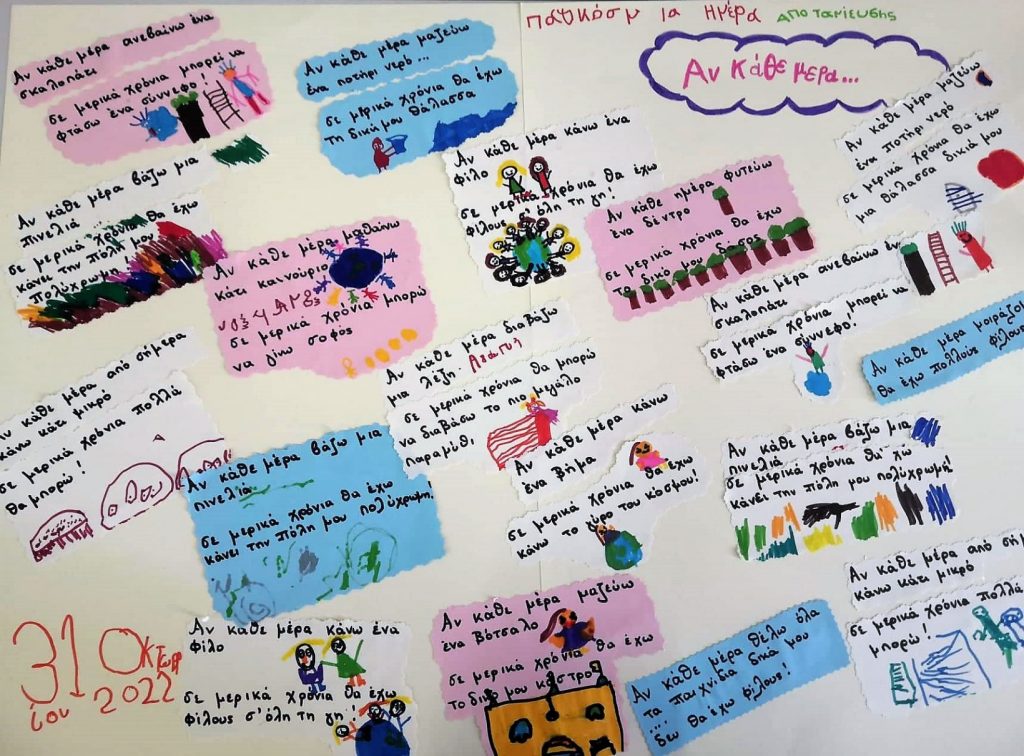 Παγκόσμια Ημέρα Αποταμίευσης
Αν Κάθε μέρα...
Αν κάθε μέρα ανεβαίνω ένα
σκαλοπάτι
σε μερικά χρόνια μπορεί να
φτάσω ένα σύννεφο!
Αν κάθε μέρα μαζεύω
ένα ποτήρι νερό...
σε μερικά χρόνια θα έχω
τη δική μου θάλασσα
Αν κάθε μέρα μαζεύω
ένα ποτήρι νερό
σε μερικά χρόνια θα έχω
μια θάλασσα δικιά μου
Αν κάθε μέρα βάζω μια
πινελιά
σε μερικά χρόνια θα έχω
κάνει την πόλη μου
πολύχρωμη
Αν κάθε μέρα κάνω ένα
φίλο
σε μερικά χρόνια θα έχω
φίλους σ' όλη τη γη!
Αν κάθε ημέρα φυτεύω
ένα δέντρο
σε μερικά χρόνια θα έχω
το δικό μου δάσος
Αν κάθε μέρα μαθαίνω
κάτι καινούριο
σε μερικά χρόνια μπορώ
να γίνω σοφός
Αν κάθε μέρα ανεβαίνω ένα
σκαλοπάτι
σε μερικά χρόνια μπορεί να
φτάσω ένα σύννεφο!
Αν κάθε μέρα διαβάζω
μια λέξη.
σε μερικά χρόνια θα μπορώ
να διαβάσω το πιο μεγάλο
παραμύθι
Αν κάθε μέρα μοιράζομαι
θα έχω πολλούς φίλους
Αν κάθε μέρα από σήμερα
κάνω κάτι μικρό
σε μερικά χρόνια πολλά
θα μπορώ!
Αν κάθε μέρα βάζω μια
πινελιά
σε μερικά χρόνια θα έχω
κάνει την πόλη μου πολύχρωμη!
Αν κάθε μέρα κάνω
ένα βήμα
σε μερικά χρόνια θα έχω
κάνω το γύρο του κόσμου!
Αν κάθε μέρα βάζω μια
πινελιά
σε μερικά χρόνια θα' χω
κάνει την πόλη μου πολύχρωμη!
Αν κάθε μέρα κάνω ένα
φίλο
σε μερικά χρόνια θα έχω
φίλους σ' όλη τη γη!
Αν κάθε μέρα μαζεύω
ένα βότσαλο
σε μερικά χρόνια θα έχω
το δικό μου κάστρο
Αν κάθε μέρα θέλω όλα
τα παιχνίδια δικά μου
... δεν θα έχω φίλους!
Αν κάθε μέρα από
κάνω κάτι μικρό
σε μερικά χρόνια πολλά
μπορώ!
31 Οκτωβρίου
2022